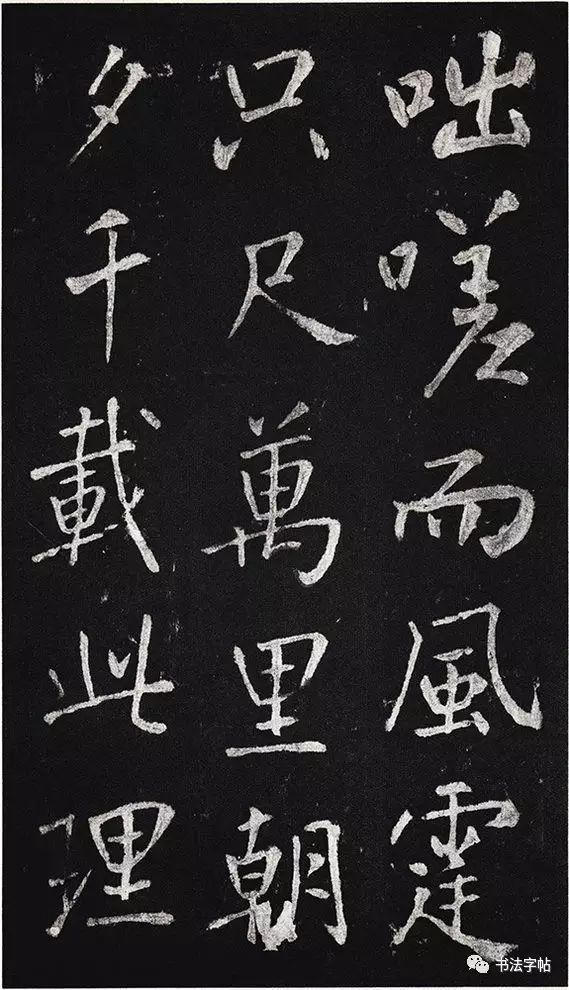 咄嗟而風霆
只尺萬里朝
夕千載此理
书法字帖